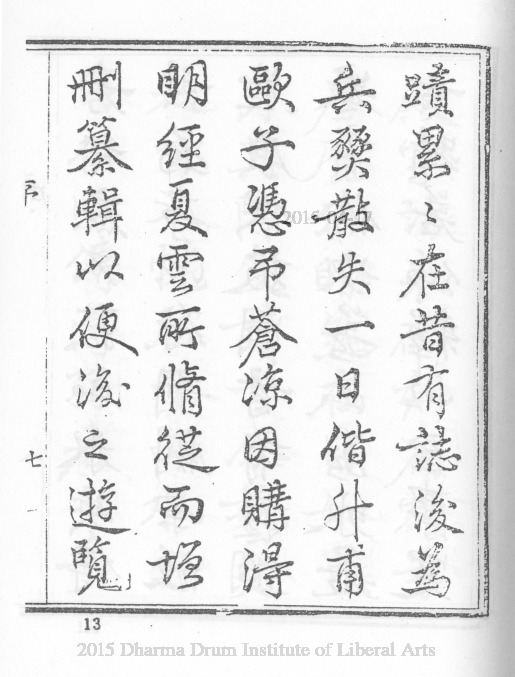 蹟累〻在昔有誌後爲
兵燹散失一日偕升甫
歐子憑吊蒼凉因購得
明經夏雲所脩從而增
刪纂輯以便後之遊覽
序
七
13
2015 Dharma Drum Institute of Liberal Arts